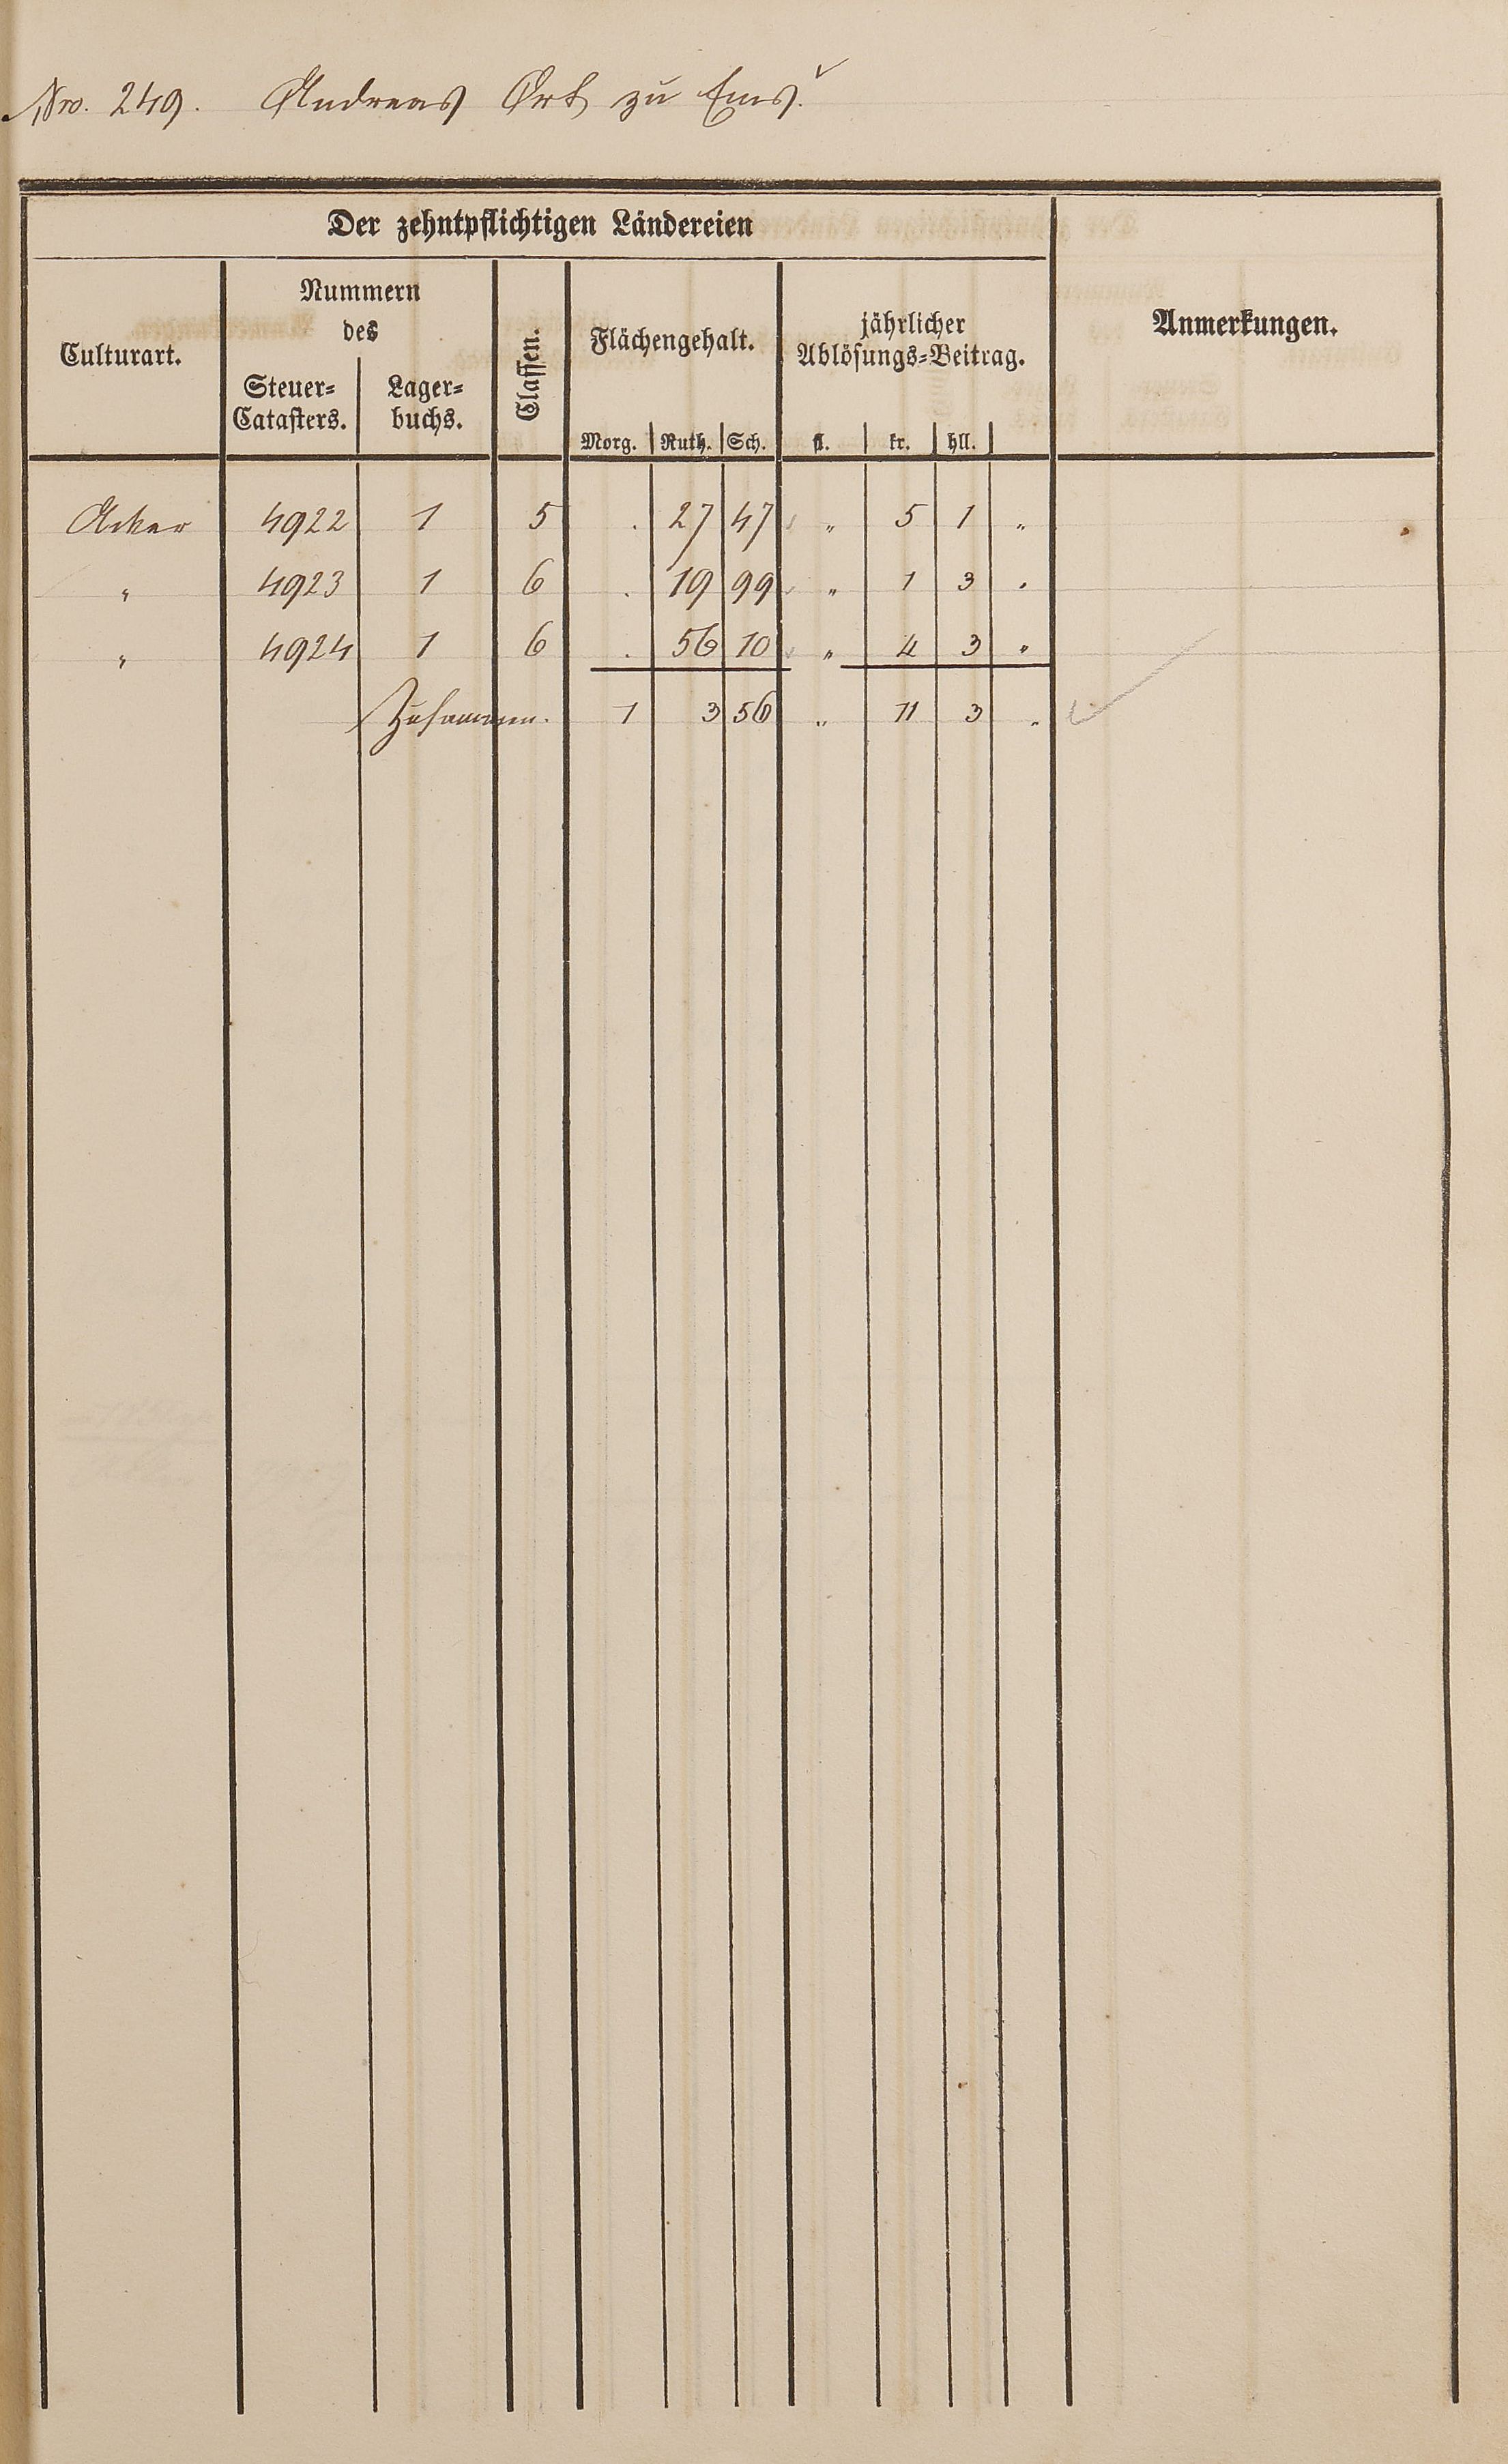 Nro. 249. Andreas Ort zu Ems.
Der zehntpflichtigen Ländereien
Culturart.
Nummern
des
Steuer-
Catasters.
Lager-
buchs.
Classen.
Flächengehalt.
Morg. Ruth. Sch.
jährlicher
Ablösungs-Beitrag.
fl. kr. hll.
Anmerkungen.
Acker 4922 1 5 . 27 47 „ 5 1 „
„ 4923 1 6 . 19 99 „ 1 3 „
„ 4924 1 6 . 56 10 „ 4 3 „
Zusammen. 1 3 56 „ 11 3 „